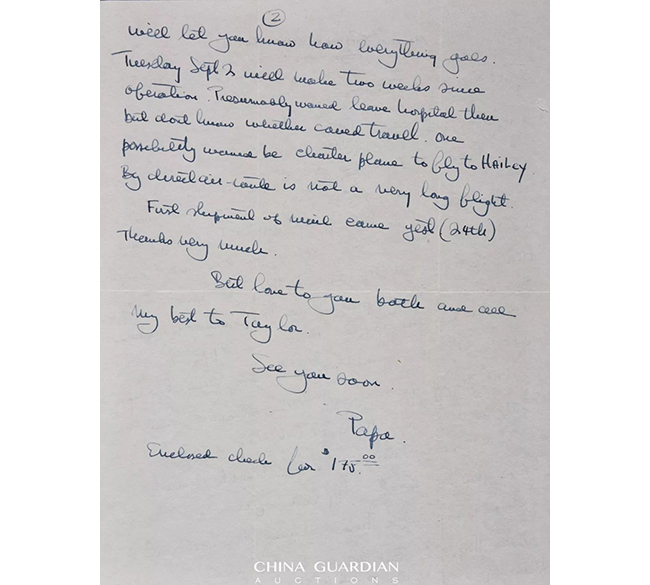 (2)
will let you know how everything goes.
Tuesday Sept 2 will make two weeks since
operation. Presumably would leave hospital then
but dont know whether could travel. One
possibility would be charter plane to fly to HAILEY.
By direct air-route is not a very long flight.
First shipment of mail came yest (24th)
Thanks very much.
Best love to you both and all
My best to Taylor.
See you soon.
Papa.
Enclosed check for $175.00
CHINA GUARDIAN
AUCTIONS